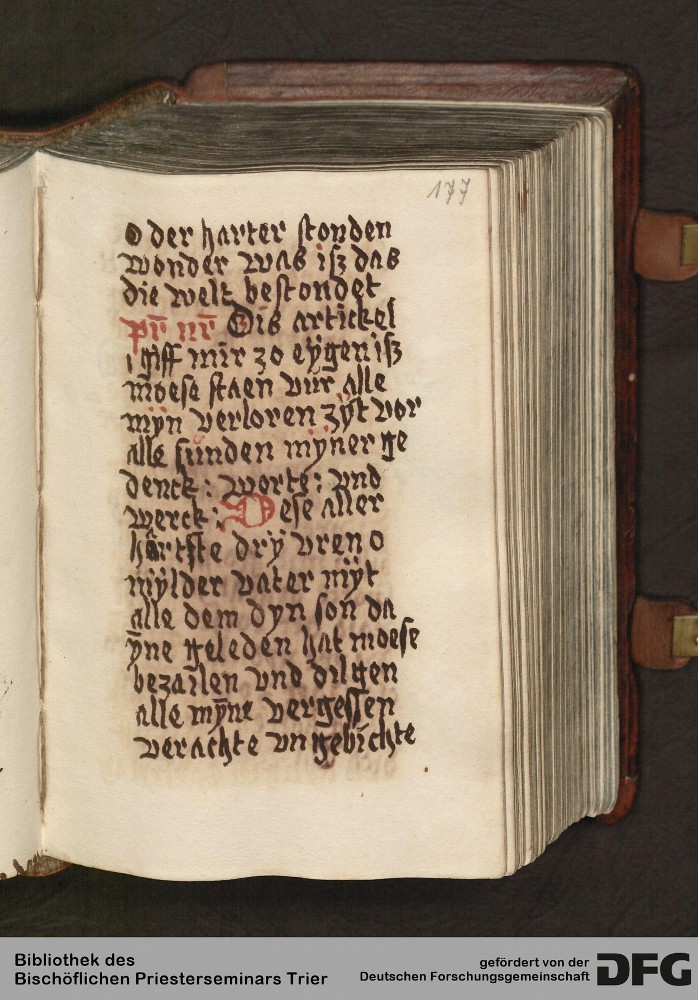 177
o der harter stonden
wonder was isz das
die welt bestondet
pr̄ nr̄ Dis artickel
giff mir zo eÿgen isz
moese staen vur alle
mÿn verloren zÿt vor
alle sunden mÿner ge
denck: worte: vnd
werck: Dese aller
hartste drÿ vren o
mÿlder vater mÿt
alle dem dyn son da
ȳne geleden hat moese
bezailen vnd dilgen
alle mȳne vergessen
verachte vngebichte
Bibliothek des
Bischöflichen Priesterseminars Trier
gefördert von der
Deutschen Forschungsgemeinschaft
DFG